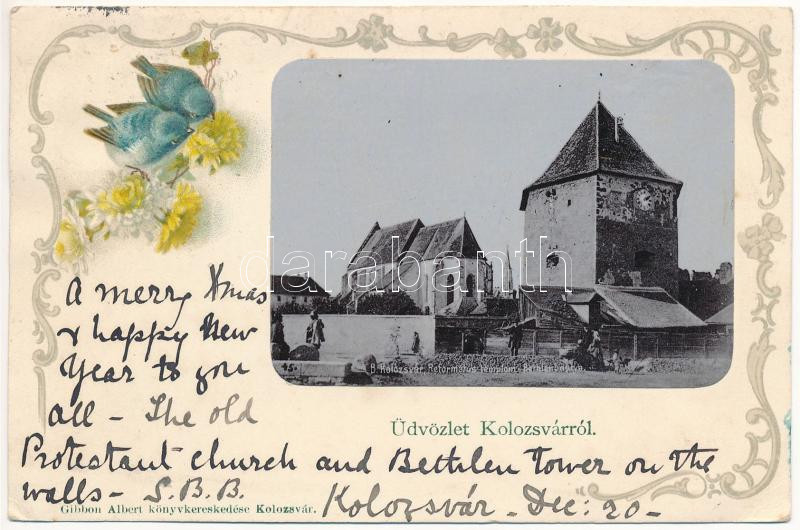 darabanth
45.
B. Kolozsvár. Református templom. Bethlen bástya.
Üdvözlet Kolozsvárról.
A merry Xmas
& happy New
Year to you
all – The old
Protestant church and Bethlen Tower on the
walls – S.B.B.
Kolozsvár – Dec: 20 –
Gibbon Albert könyvkereskedése Kolozsvár.